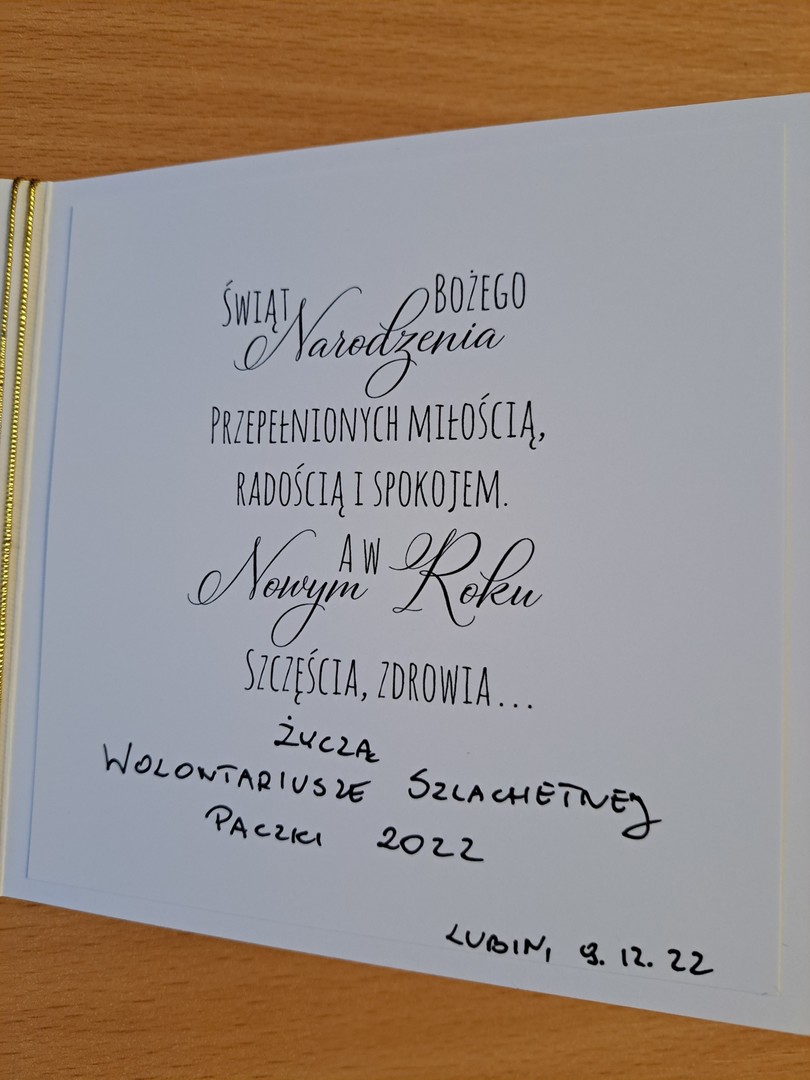 ŚWIĄT BOŻEGO
Narodzenia
PRZEPEŁNIONYCH MIŁOŚCIĄ,
RADOŚCIĄ I SPOKOJEM.
A W
Nowym Roku
SZCZĘŚCIA, ZDROWIA...
ŻYCZĄ
WOLONTARIUSZE SZLACHETNEJ
PACZKI 2022
LUBIN, 9.12.22